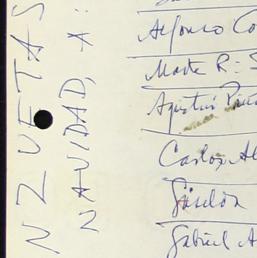 NZUETAS
NAVIDAD, A:
Alfonso Co
Marta R. S
Agustín
Carlos Al
Gabriel A